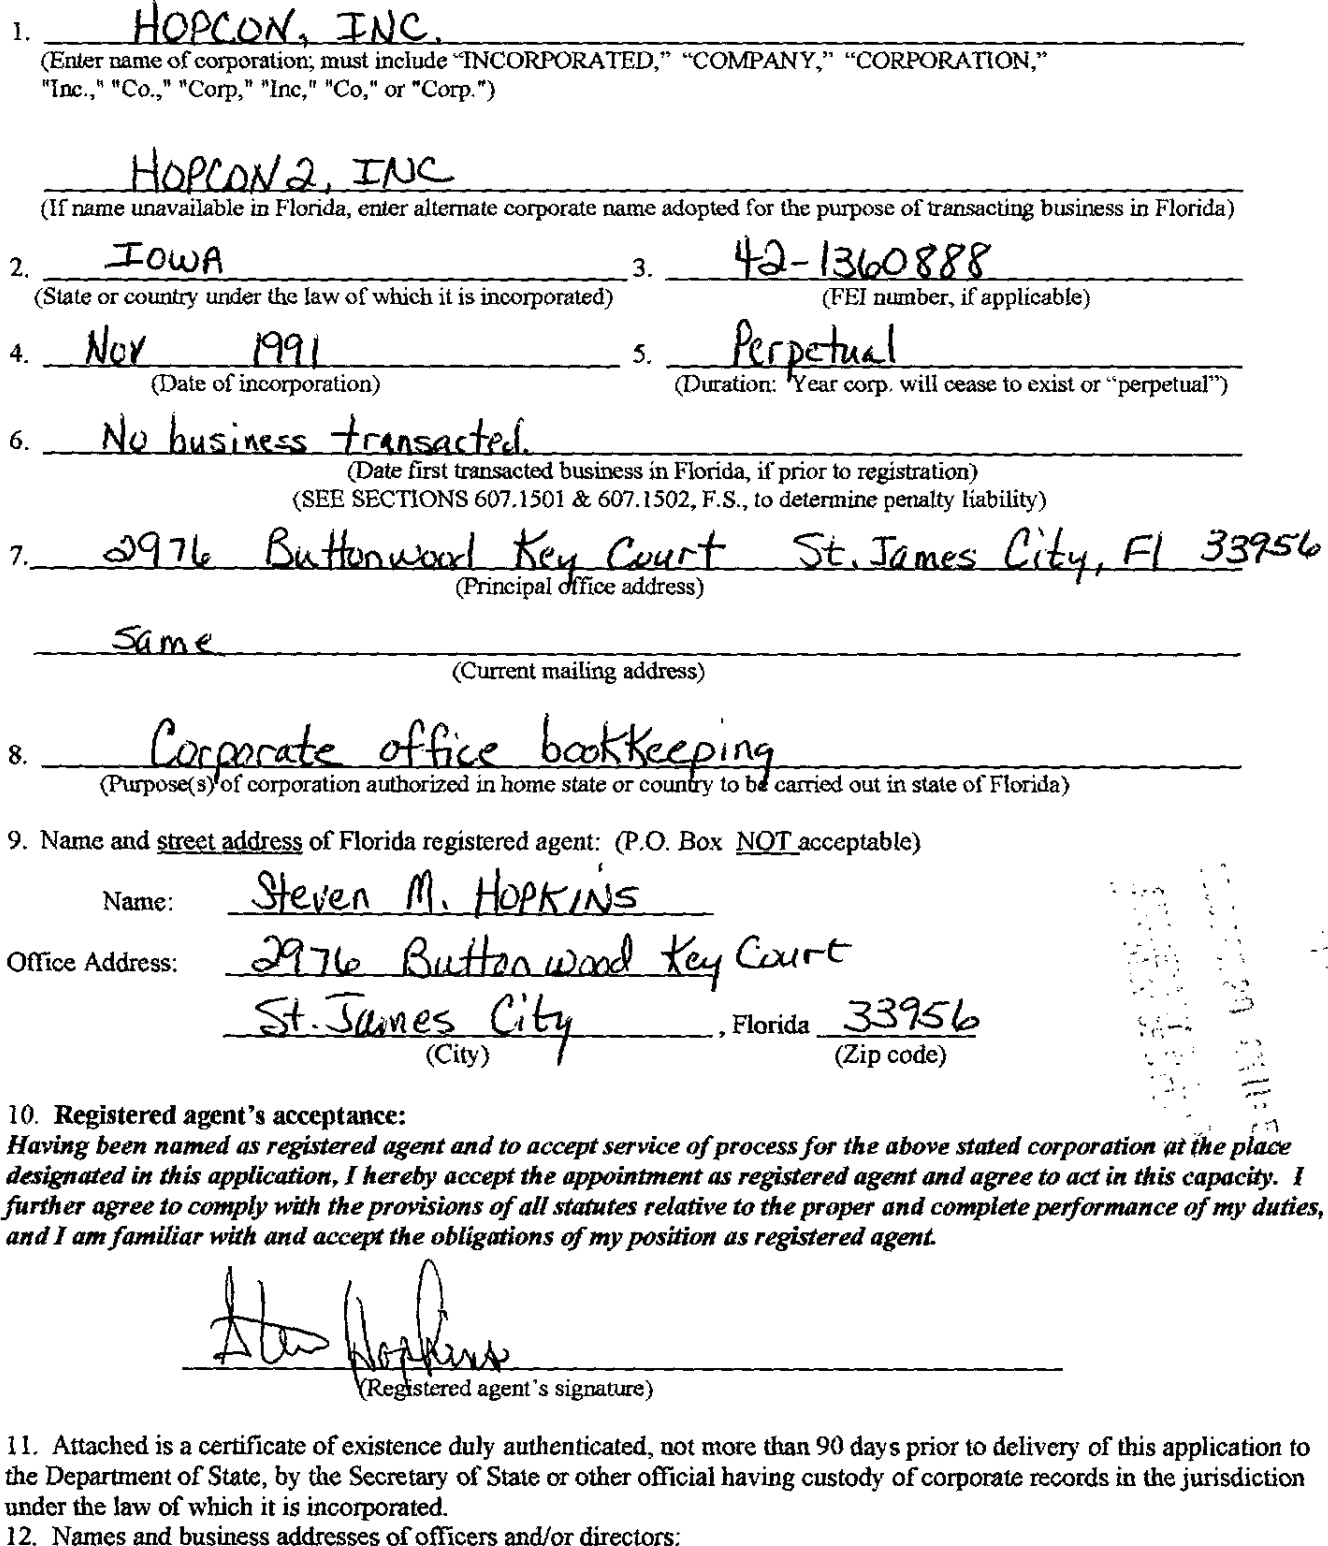 1. HOPCON, INC.
(Enter name of corporation; must include “INCORPORATED,” “COMPANY,” “CORPORATION,”
"Inc.," "Co.," "Corp," "Inc," "Co," or "Corp.")
HOPCON 2, INC
(If name unavailable in Florida, enter alternate corporate name adopted for the purpose of transacting business in Florida)
2. IOWA 3. 42-1360888
(State or country under the law of which it is incorporated) (FEI number, if applicable)
4. Nov 1991 5. Perpetual
(Date of incorporation) (Duration: Year corp. will cease to exist or “perpetual”)
6. No business transacted.
(Date first transacted business in Florida, if prior to registration)
(SEE SECTIONS 607.1501 & 607.1502, F.S., to determine penalty liability)
7. 2976 Buttonwood Key Court St. James City, Fl 33956
(Principal office address)
Same
(Current mailing address)
8. Corporate office bookkeeping
(Purpose(s) of corporation authorized in home state or country to be carried out in state of Florida)
9. Name and street address of Florida registered agent: (P.O. Box NOT acceptable)
Name: Steven M. HOPKINS
Office Address: 2976 Buttonwood Key Court
St. James City, Florida 33956
(City) (Zip code)
10. Registered agent’s acceptance:
Having been named as registered agent and to accept service of process for the above stated corporation at the place
designated in this application, I hereby accept the appointment as registered agent and agree to act in this capacity. I
further agree to comply with the provisions of all statutes relative to the proper and complete performance of my duties,
and I am familiar with and accept the obligations of my position as registered agent.
Steve Hopkins
(Registered agent’s signature)
11. Attached is a certificate of existence duly authenticated, not more than 90 days prior to delivery of this application to
the Department of State, by the Secretary of State or other official having custody of corporate records in the jurisdiction
under the law of which it is incorporated.
12. Names and business addresses of officers and/or directors: